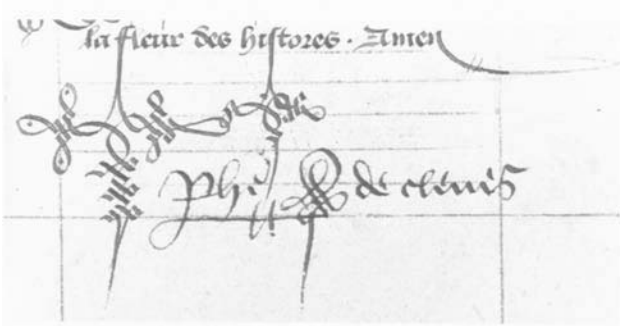 la fleur des histores . Amen
Phe de clevis